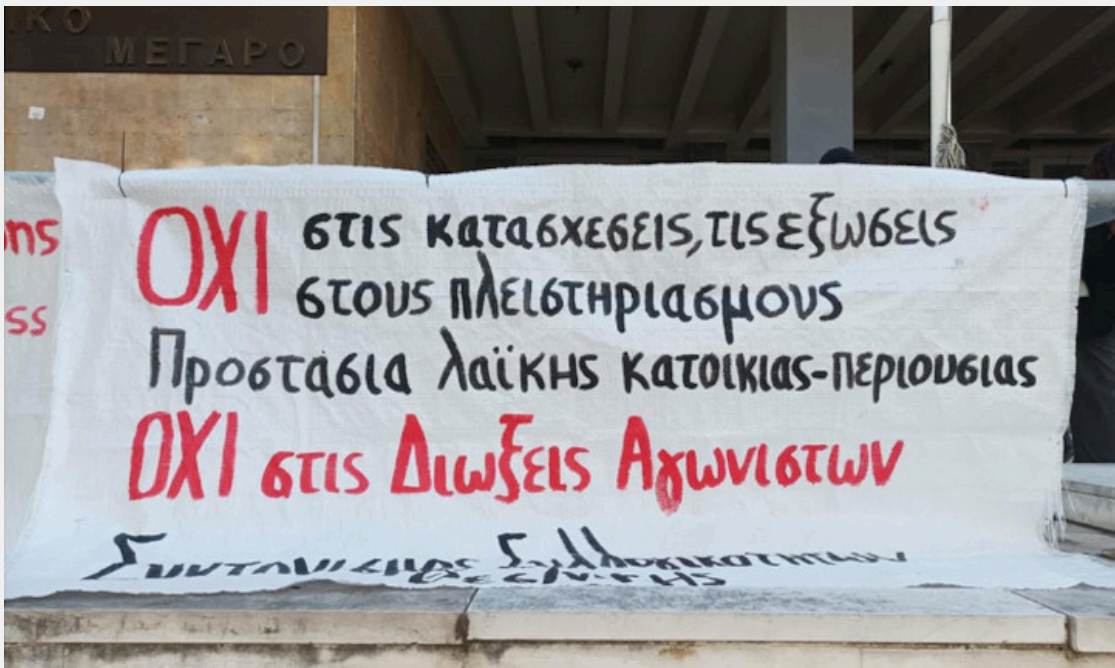 ΙΚΟ
ΜΕΓΑΡΟ
ης
ss
ΟΧΙ στις κατασχεσεις, τις εξωσεις
στους πλειστηριασμους
Προστασια λαϊκης κατοικιας-περιουσιας
ΟΧΙ στις Διωξεις Αγωνιστων
Συντονισμος Συλλογικοτητων
Θεσ/νικης